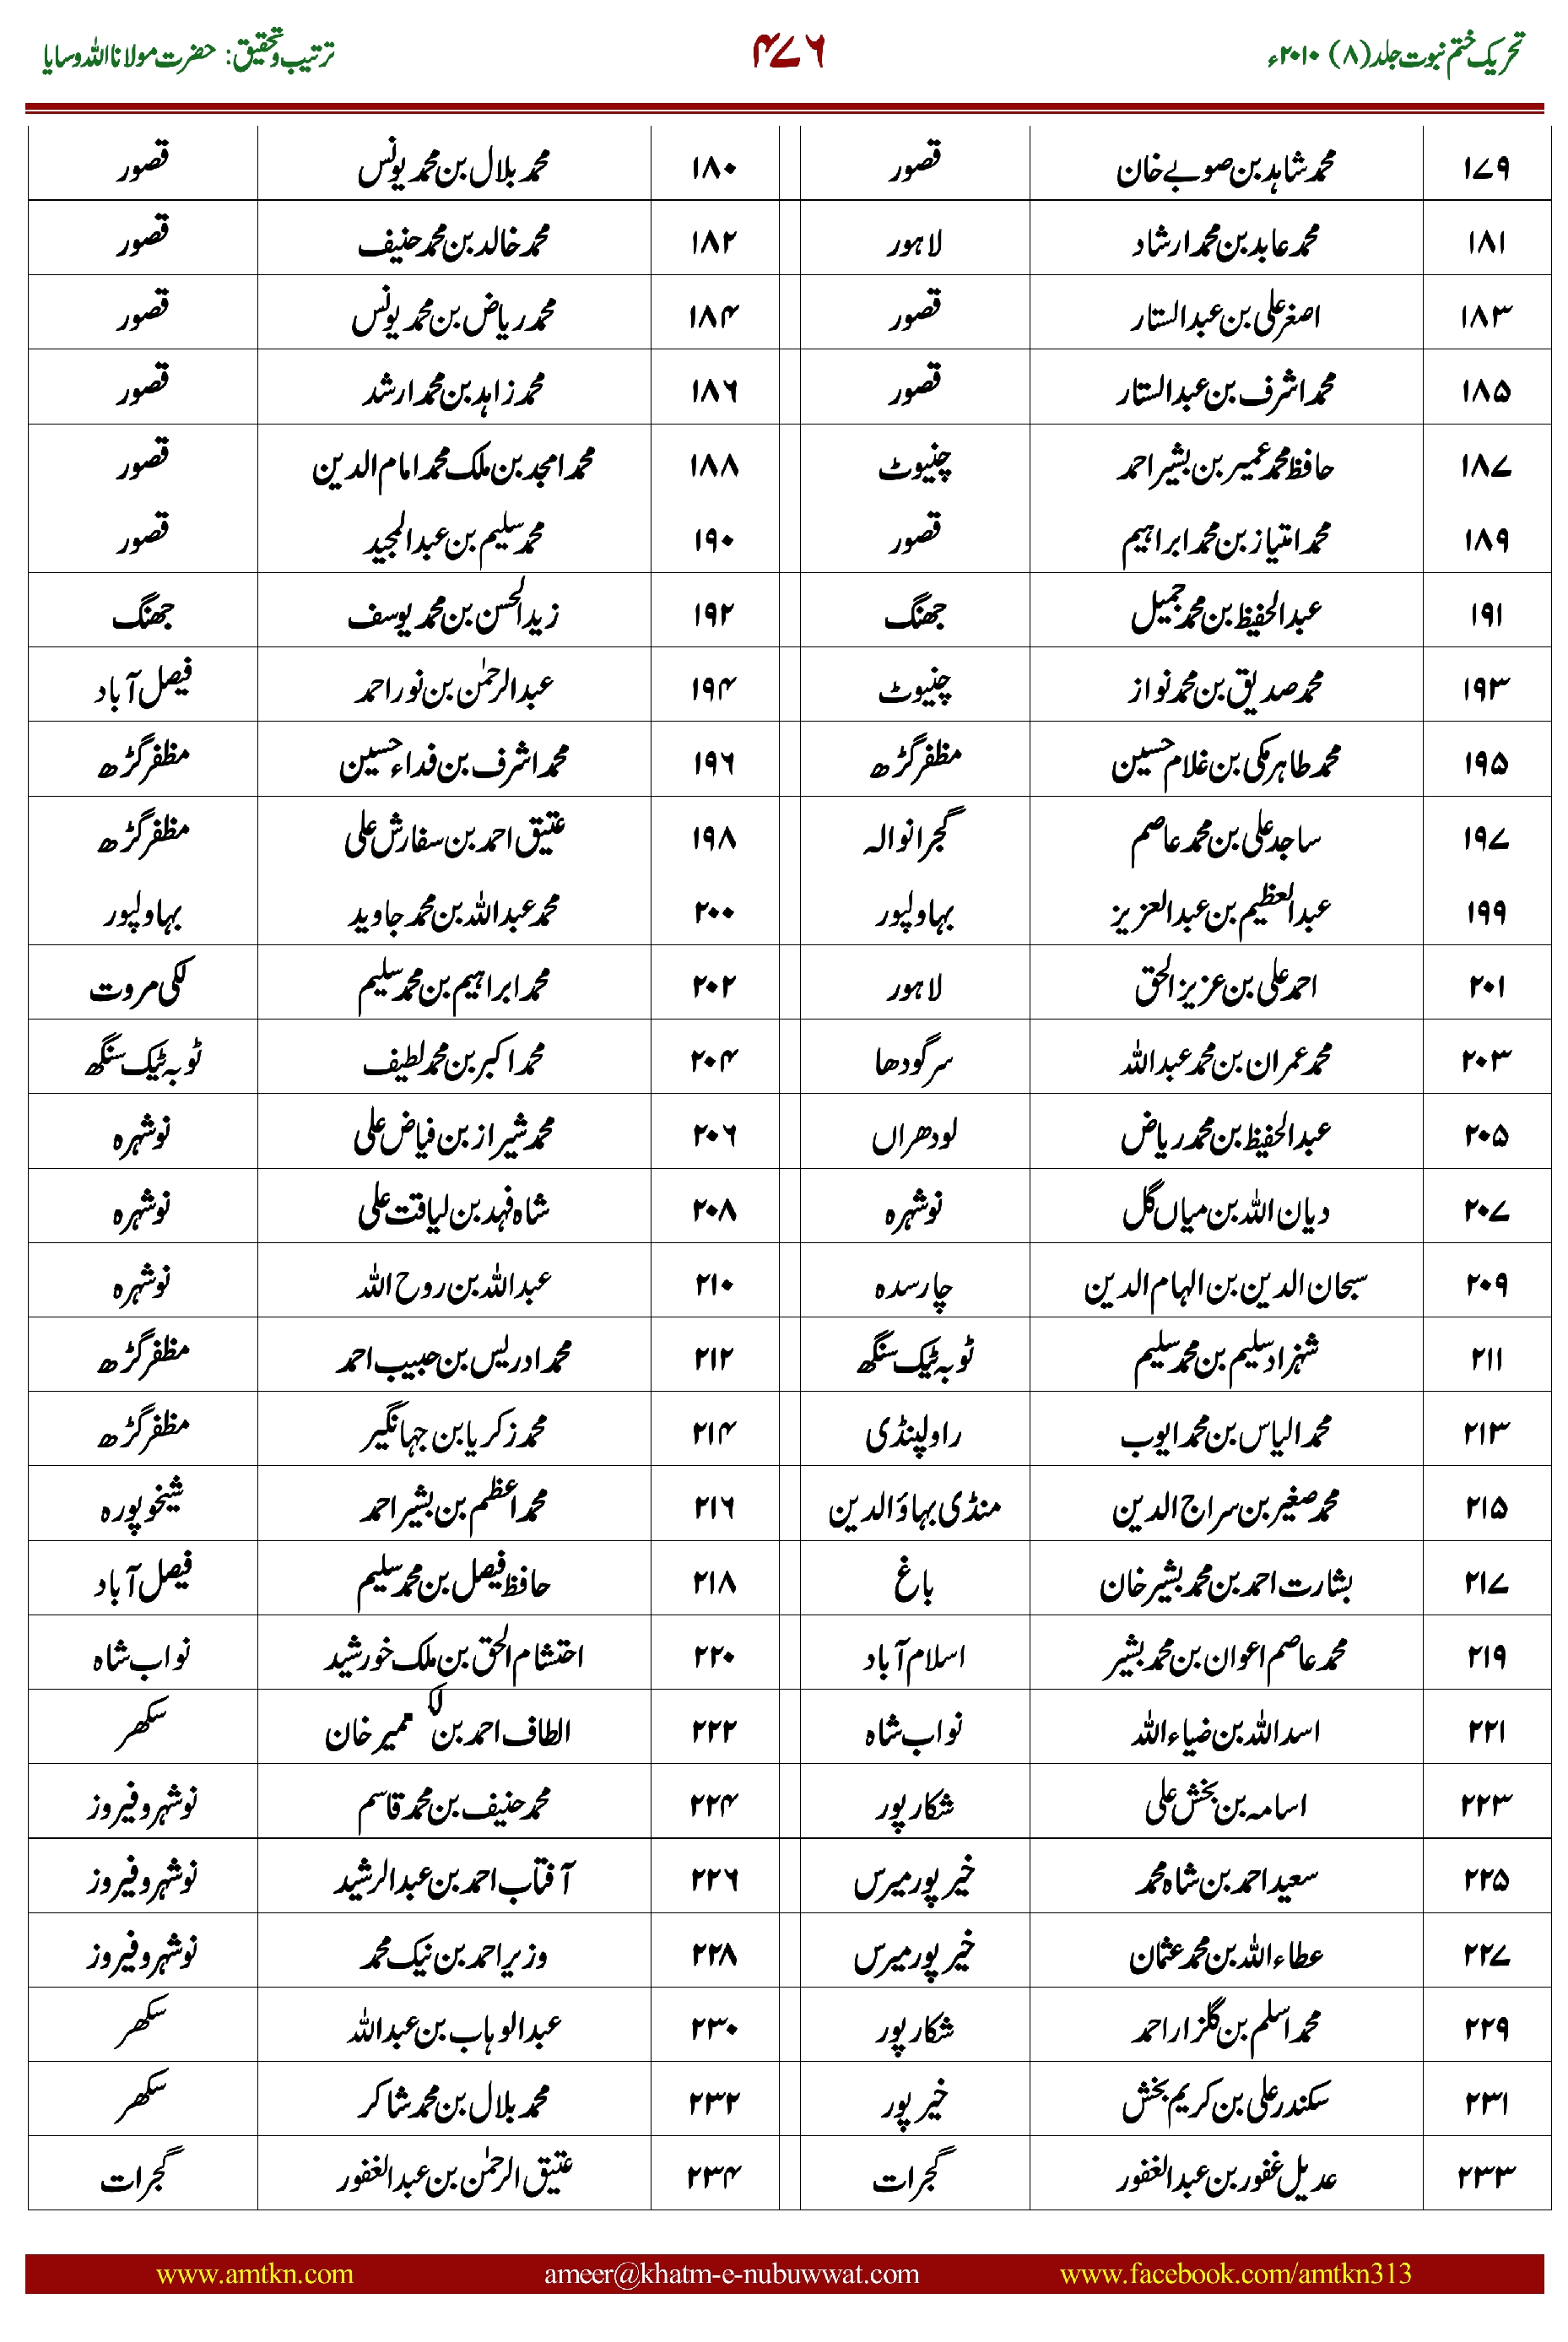 تحریک ختم نبوت جلد(۸) ۲۰۱۰ء ۴۷۶ ترتیب و تحقیق: حضرت مولانا اللہ وسایا
۱۷۹ محمد شاہد بن صوبے خان قصور ۱۸۰ محمد بلال بن محمد یونس قصور
۱۸۱ محمد عابد بن محمد ارشاد لاہور ۱۸۲ محمد خالد بن محمد حنیف قصور
۱۸۳ اصغر علی بن عبدالستار قصور ۱۸۴ محمد ریاض بن محمد یونس قصور
۱۸۵ محمد اشرف بن عبدالستار قصور ۱۸۶ محمد زاہد بن محمد ارشد قصور
۱۸۷ حافظ محمد عمیر بن بشیر احمد چنیوٹ ۱۸۸ محمد امجد بن ملک محمد امام الدین قصور
۱۸۹ محمد امتیاز بن محمد ابراہیم قصور ۱۹۰ محمد سلیم بن عبدالمجید قصور
۱۹۱ عبدالحفیظ بن محمد جمیل جھنگ ۱۹۲ زید الحسن بن محمد یوسف جھنگ
۱۹۳ محمد صدیق بن محمد نواز چنیوٹ ۱۹۴ عبدالرحمٰن بن نور احمد فیصل آباد
۱۹۵ محمد طاہر مکی بن غلام حسین مظفر گڑھ ۱۹۶ محمد اشرف بن فداء حسین مظفر گڑھ
۱۹۷ ساجد علی بن محمد عاصم گجرانوالہ ۱۹۸ عتیق احمد بن سفارش علی مظفر گڑھ
۱۹۹ عبدالعظیم بن عبدالعزیز بہاولپور ۲۰۰ محمد عبداللہ بن محمد جاوید بہاولپور
۲۰۱ احمد علی بن عزیز الحق لاہور ۲۰۲ محمد ابراہیم بن محمد سلیم لکی مروت
۲۰۳ محمد عمران بن محمد عبداللہ سرگودھا ۲۰۴ محمد اکبر بن محمد لطیف ٹوبہ ٹیک سنگھ
۲۰۵ عبدالحفیظ بن محمد ریاض لودھراں ۲۰۶ محمد شیراز بن فیاض علی نوشہرہ
۲۰۷ دیان اللہ بن میاں گل نوشہرہ ۲۰۸ شاہ فہد بن لیاقت علی نوشہرہ
۲۰۹ سبحان الدین بن الہام الدین چارسدہ ۲۱۰ عبداللہ بن روح اللہ نوشہرہ
۲۱۱ شہزاد سلیم بن محمد سلیم ٹوبہ ٹیک سنگھ ۲۱۲ محمد ادریس بن حبیب احمد مظفر گڑھ
۲۱۳ محمد الیاس بن محمد ایوب راولپنڈی ۲۱۴ محمد زکریا بن جہانگیر مظفر گڑھ
۲۱۵ محمد صغیر بن سراج الدین منڈی بہاؤالدین ۲۱۶ محمد اعظم بن بشیر احمد شیخوپورہ
۲۱۷ بشارت احمد بن محمد بشیر خان باغ ۲۱۸ حافظ فیصل بن محمد سلیم فیصل آباد
۲۱۹ محمد عاصم اعوان بن محمد بشیر اسلام آباد ۲۲۰ احتشام الحق بن ملک خورشید نواب شاہ
۲۲۱ اسد اللہ بن ضیاء اللہ نواب شاہ ۲۲۲ الطاف احمد بن خان سکھر
۲۲۳ اسامہ بن بخش علی شکارپور ۲۲۴ محمد حنیف بن محمد قاسم نوشہرو فیروز
۲۲۵ سعید احمد بن شاہ محمد خیر پور میرس ۲۲۶ آفتاب احمد بن عبدالرشید نوشہرو فیروز
۲۲۷ عطاء اللہ بن محمد عثمان خیر پور میرس ۲۲۸ وزیر احمد بن نیک محمد نوشہرو فیروز
۲۲۹ محمد اسلم بن گلزار احمد شکارپور ۲۳۰ عبدالوہاب بن عبداللہ سکھر
۲۳۱ سکندر علی بن کریم بخش خیر پور ۲۳۲ محمد بلال بن محمد شاکر سکھر
۲۳۳ عدیل غفور بن عبدالغفور گجرات ۲۳۴ عتیق الرحمٰن بن عبدالغفور گجرات
www.amtkn.com ameer@khatm-e-nubuwwat.com www.facebook.com/amtkn313